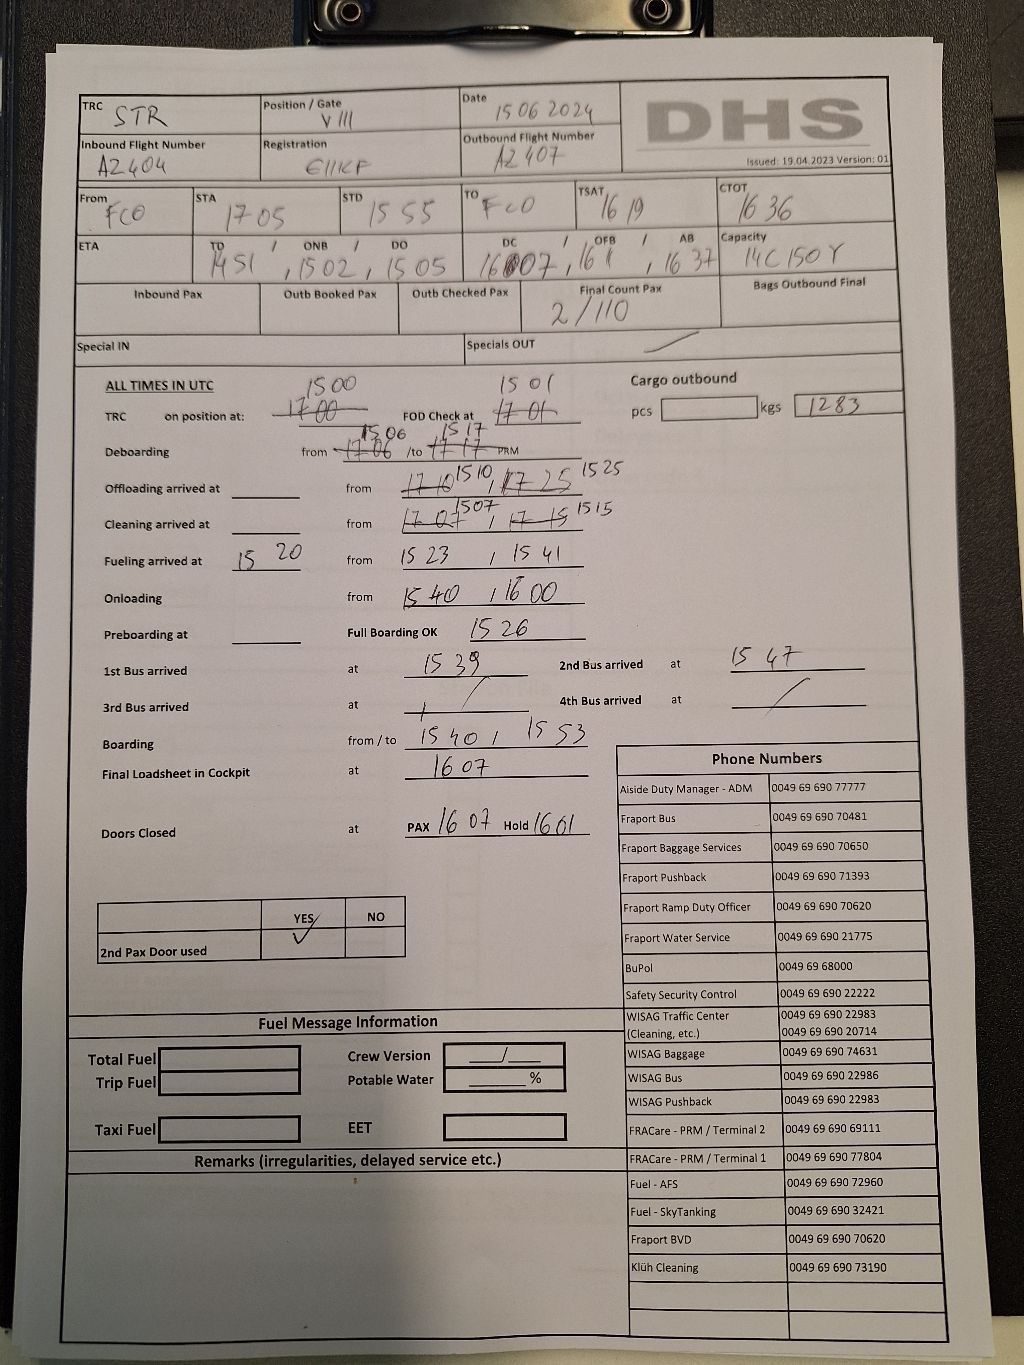 TRC STR Position / Gate V 111 Date 15 06 2024 DHS
Inbound Flight Number AZ404 Registration EIIKF Outbound Flight Number AZ407 Issued: 19.04.2023 Version: 01
From FCO STA 17 05 STD 15 55 TO FCO TSAT 16 19 CTOT 16 36
ETA TD / ONB / DO 1451 , 1502 , 1505 DC / OFB / AB 1607 , 161 , 1637 Capacity 14C 150Y
Inbound Pax Outb Booked Pax Outb Checked Pax Final Count Pax 2/110 Bags Outbound Final
Special IN Specials OUT
ALL TIMES IN UTC 1500 1501 Cargo outbound
TRC on position at: 17 00 FOD Check at 17 01 pcs kgs 1283
1506 1517
Deboarding from 17 06 /to 17 17 PRM
Offloading arrived at from 17 10 1510 , 17 25 1525
Cleaning arrived at from 17 07 1507 , 17 15 1515
Fueling arrived at 15 20 from 15 23 / 15 41
Onloading from 15 40 / 16 00
Preboarding at Full Boarding OK 15 26
1st Bus arrived at 15 39 2nd Bus arrived at 15 47
3rd Bus arrived at 4th Bus arrived at
Boarding from / to 15 40 / 15 53
Final Loadsheet in Cockpit at 16 07
Doors Closed at PAX 16 07 Hold 1601
YES NO
2nd Pax Door used ✓
Phone Numbers
Aiside Duty Manager - ADM 0049 69 690 77777
Fraport Bus 0049 69 690 70481
Fraport Baggage Services 0049 69 690 70650
Fraport Pushback 0049 69 690 71393
Fraport Ramp Duty Officer 0049 69 690 70620
Fraport Water Service 0049 69 690 21775
BuPol 0049 69 68000
Safety Security Control 0049 69 690 22222
WISAG Traffic Center 0049 69 690 22983
(Cleaning, etc.) 0049 69 690 20714
WISAG Baggage 0049 69 690 74631
WISAG Bus 0049 69 690 22986
WISAG Pushback 0049 69 690 22983
FRACare - PRM / Terminal 2 0049 69 690 69111
FRACare - PRM / Terminal 1 0049 69 690 77804
Fuel - AFS 0049 69 690 72960
Fuel - SkyTanking 0049 69 690 32421
Fraport BVD 0049 69 690 70620
Klüh Cleaning 0049 69 690 73190
Fuel Message Information
Total Fuel Crew Version /
Trip Fuel Potable Water %
Taxi Fuel EET
Remarks (irregularities, delayed service etc.)